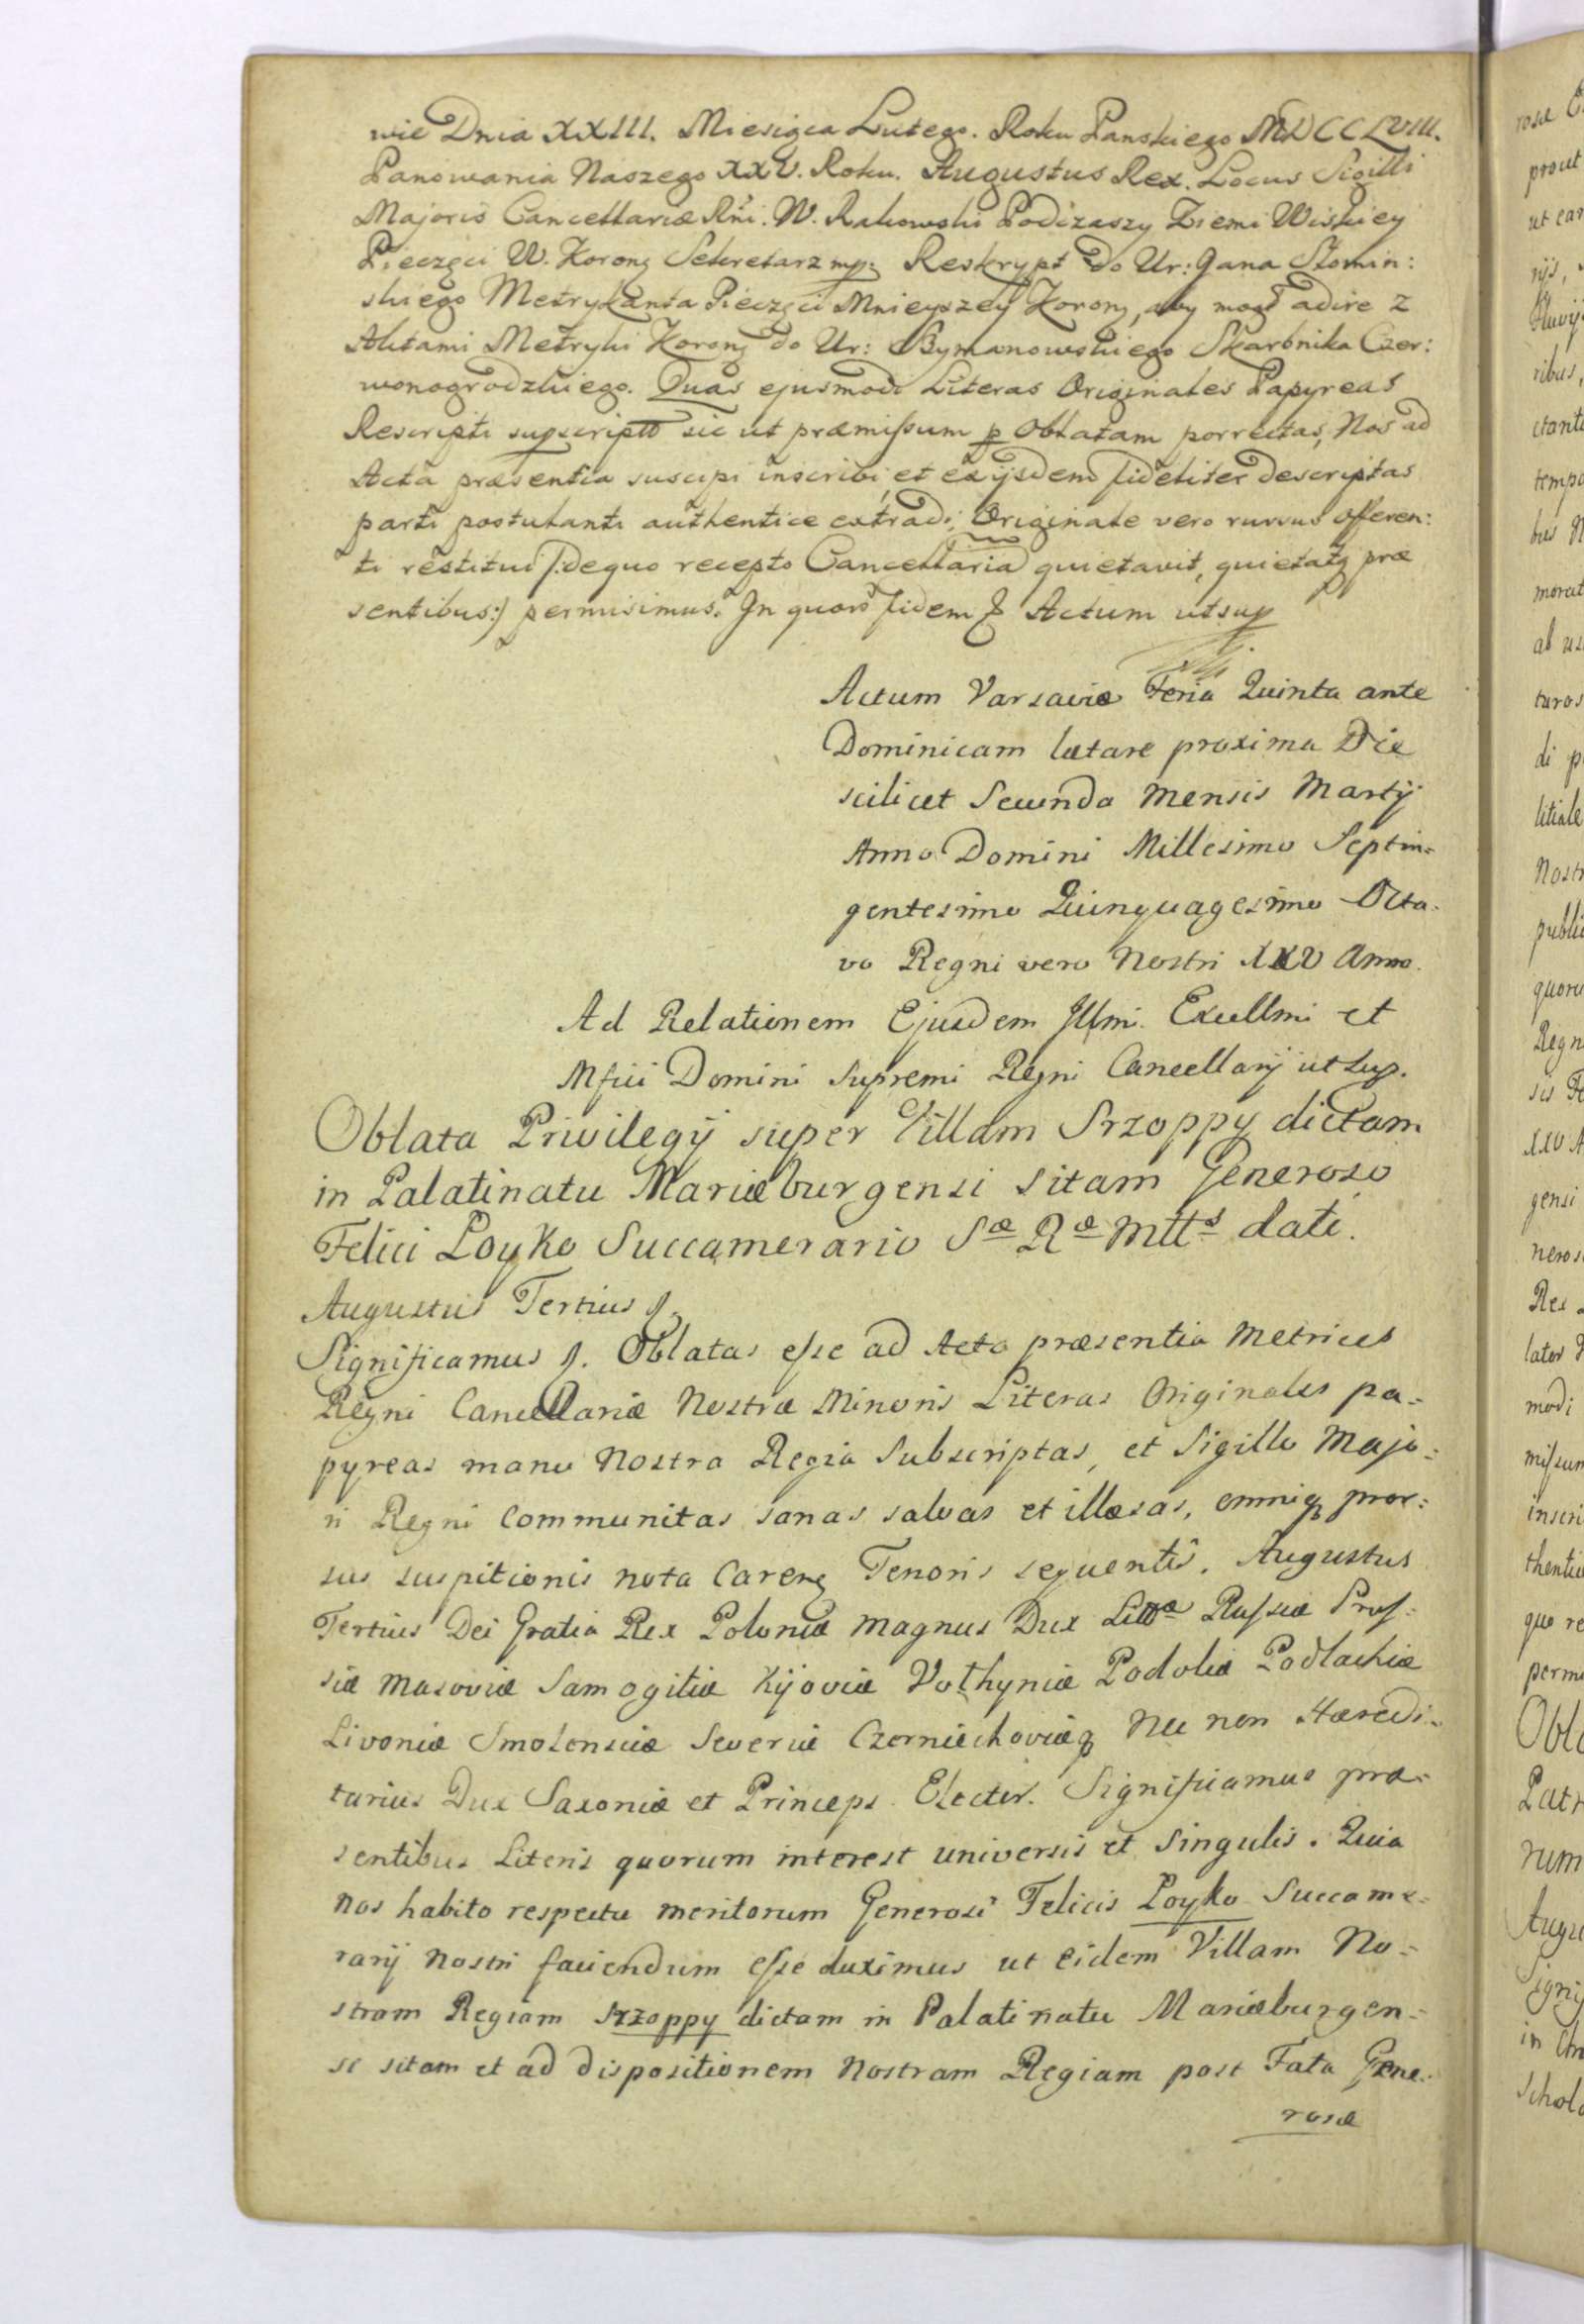 wie Dnia XXIII. Miesiąca Lutego. Roku Panskiego MDCCLVIII.
Panowania Naszego XXV. Roku. Augustus Rex. Locus Sigilli
Majoris Cancellariæ Rñi. W. Rakowski Podczaszy Ziemi Wiskiey
Pieczęci W. Koronȩ Sekretarz mp. Reskrypt do Ur: Jana Słomin:
skiego Metrykanta Pieczęci Mnieyszey Koronȩ, aby mogł adire z
Aktami Metryki Koronȩ do Ur: Bymanowskiego Skarbnika Czer:
wonogrodzkiego. Duas ejusmodi Literas Originales Papyreas
Rescripti supscriptt sic ut præmissum p Oblatam porrectas, Nos ad
Acta præsentia suscipi inscribi, et ex ijsdem fideliter descriptas
parti postulanti authentice extradi, Originale vero rursus offeren:
ti restitui /:de quo recepto Cancellaria quietavit, quietatq præ
sentibus:/ permisimus. In quorꝰ fidem & Actum ut sup
Actum Varsaviæ Feria Quinta ante
Dominicam lætare proxima Die
scilicet Secunda Mensis Martij
Anno Domini Millesimo Septin=
gentesimo Quinquagesimo Octa-
vo Regni vero Nostri XXV Anno.
Ad Relationem Ejusdem Illmi. Excellmi et
Mfici Domini Supremi Regni Cancellarij ut sup.
Oblata Privilegij super Villam Srzoppy dictam
in Palatinatu Mariæburgensi sitam Generoso
Felici Łoyko Succamerario Sæ Ræ Mtts dati.
Augustus Tertius &.
Significamus &. Oblatas esse ad Acta præsentia Metrices
Regni Cancellariæ Nostræ Minoris Literas Originales pa=
pyreas manu Nostra Regia Subscriptas, et Sigillo Majo=
ri Regni Communitas sanas salvas et illæsas, omniq pror:
sus suspitionis nota Careng Tenoris sequentis. Augustus
Tertius Dei Gratia Rex Poloniæ Magnus Dux Littæ Russiæ Prus=
siæ Masoviæ Samogitiæ Kijoviæ Volhyniæ Podoliæ Podlachiæ
Livoniæ Smolensciæ Severiæ Czerniechoviæq Nec non Hæredi=
tarius Dux Saxoniæ et Princeps Elector. Significamus præ=
sentibus Literis quorum interest universis et Singulis. Quia
Nos habito respectu meritorum Generosi Felicis Łoyko Succame=
rarij Nostri faciendum esse duximus ut eidem Villam No=
stram Regiam Srzoppy dictam in Palatinatu Mariæburgen=
si sitam et ad dispositionem Nostram Regiam post Fata Gene=
rosæ